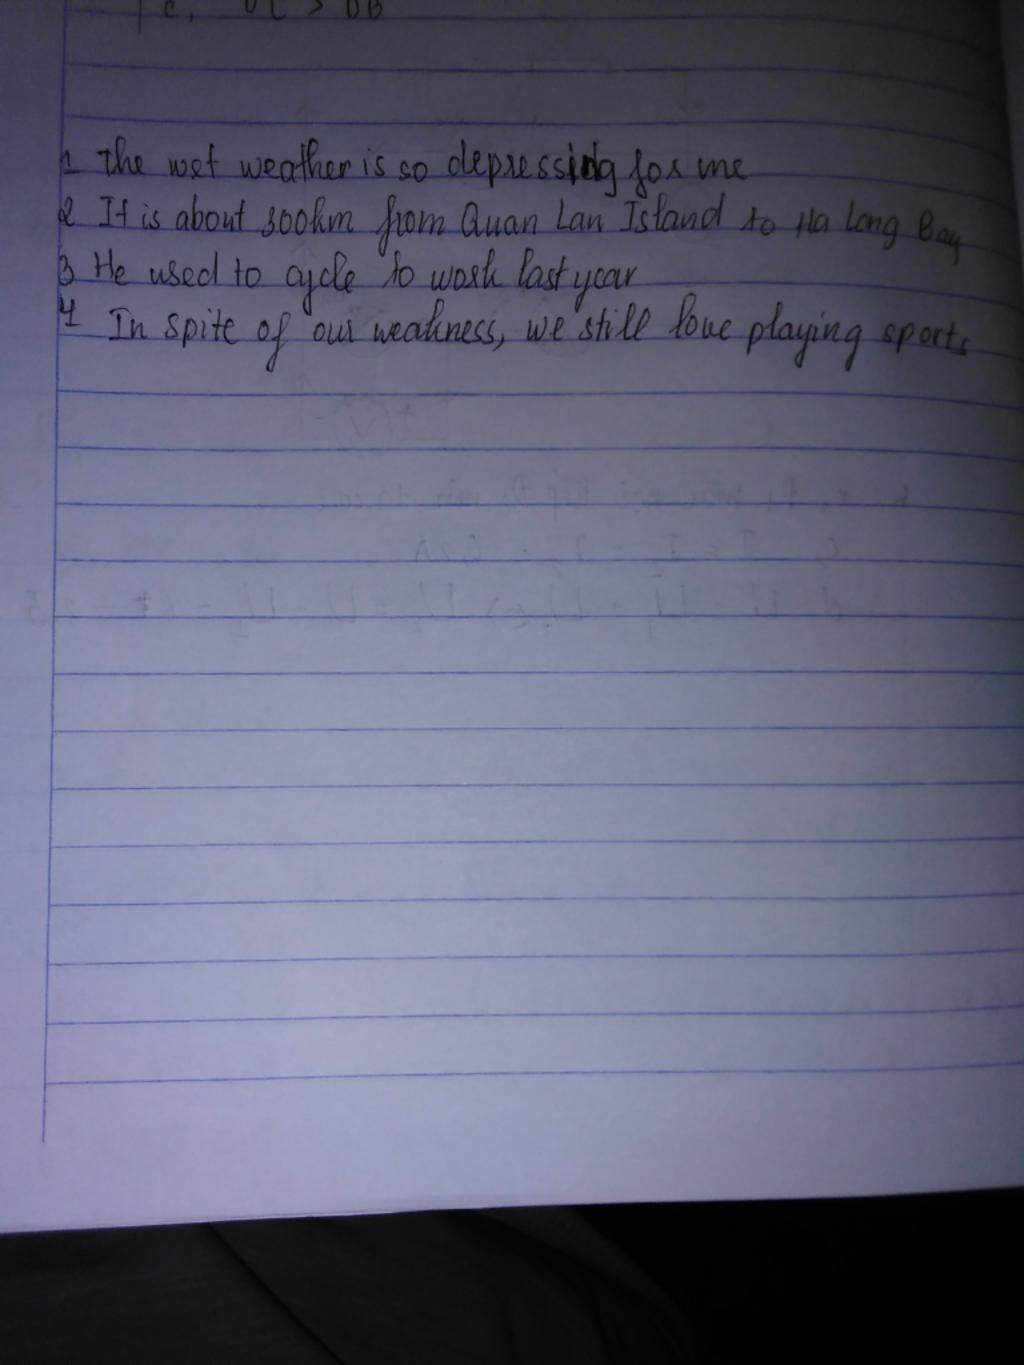 1 The wet weather is so depressing for me
2 It is about 300km from Quan Lan Island to Ha Long Bay
3 He used to cycle to work last year
4 In spite of our weakness, we still love playing sports